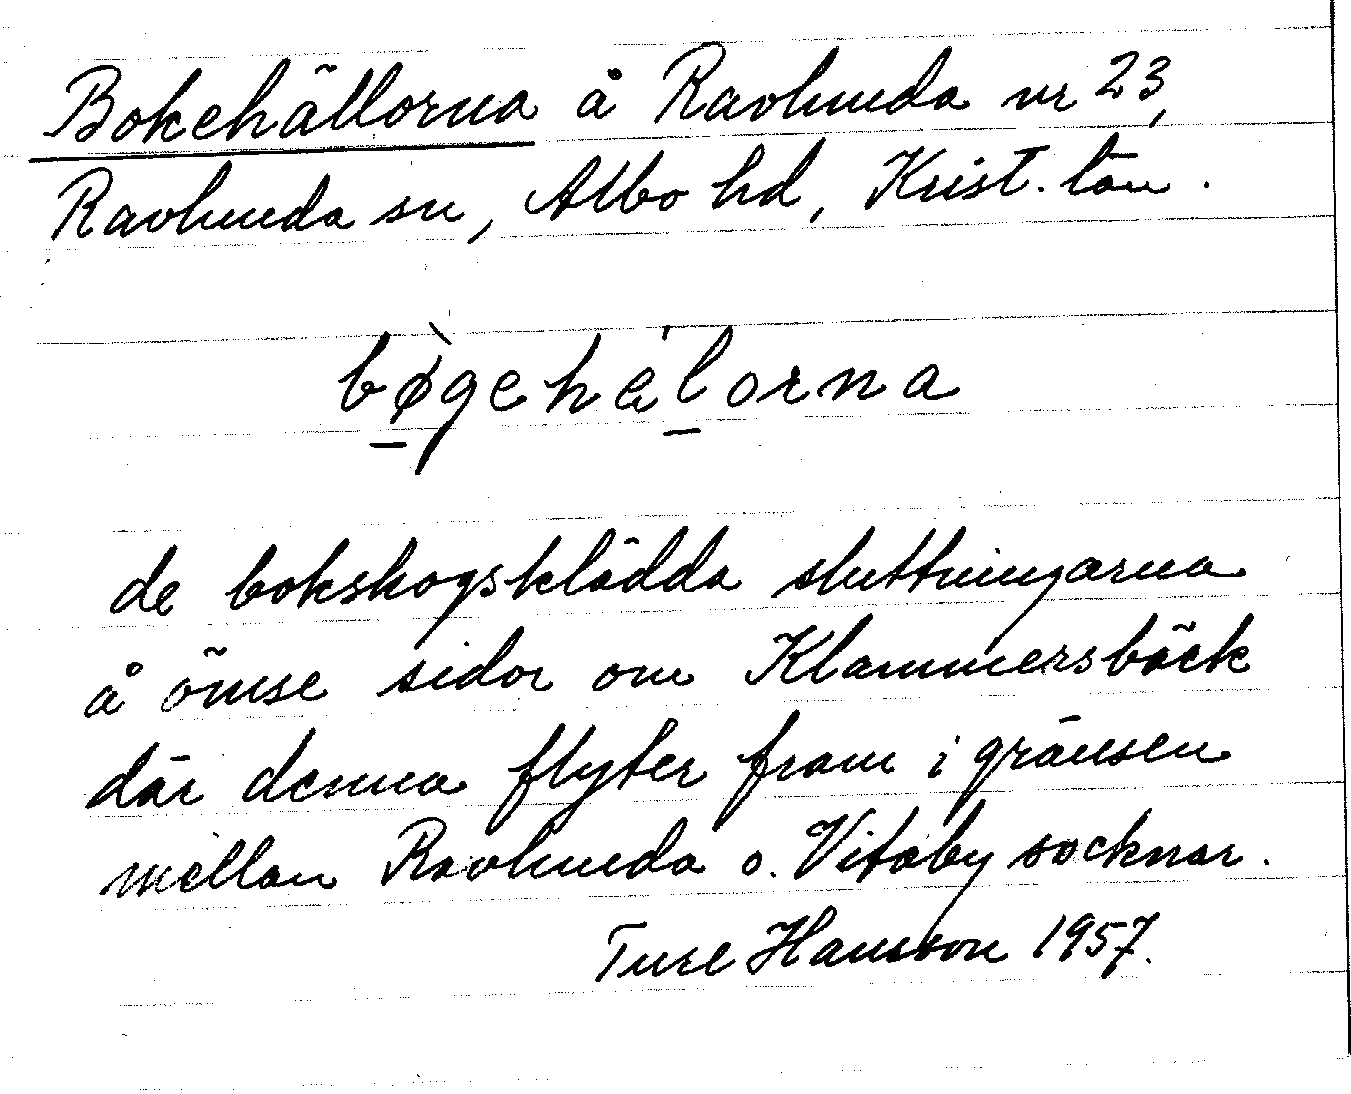 Bokehällorna å Ravlunda nr 23,
Ravlunda sn, Albo hd, Krist. län.
bø̀gehalorna
de bokskogsklädda sluttningarna
å ömse sidor om Klammersbäck
där denna flyter fram i gränsen
mellan Ravlunda o. Vitaby socknar.
Ture Hansson 1957.